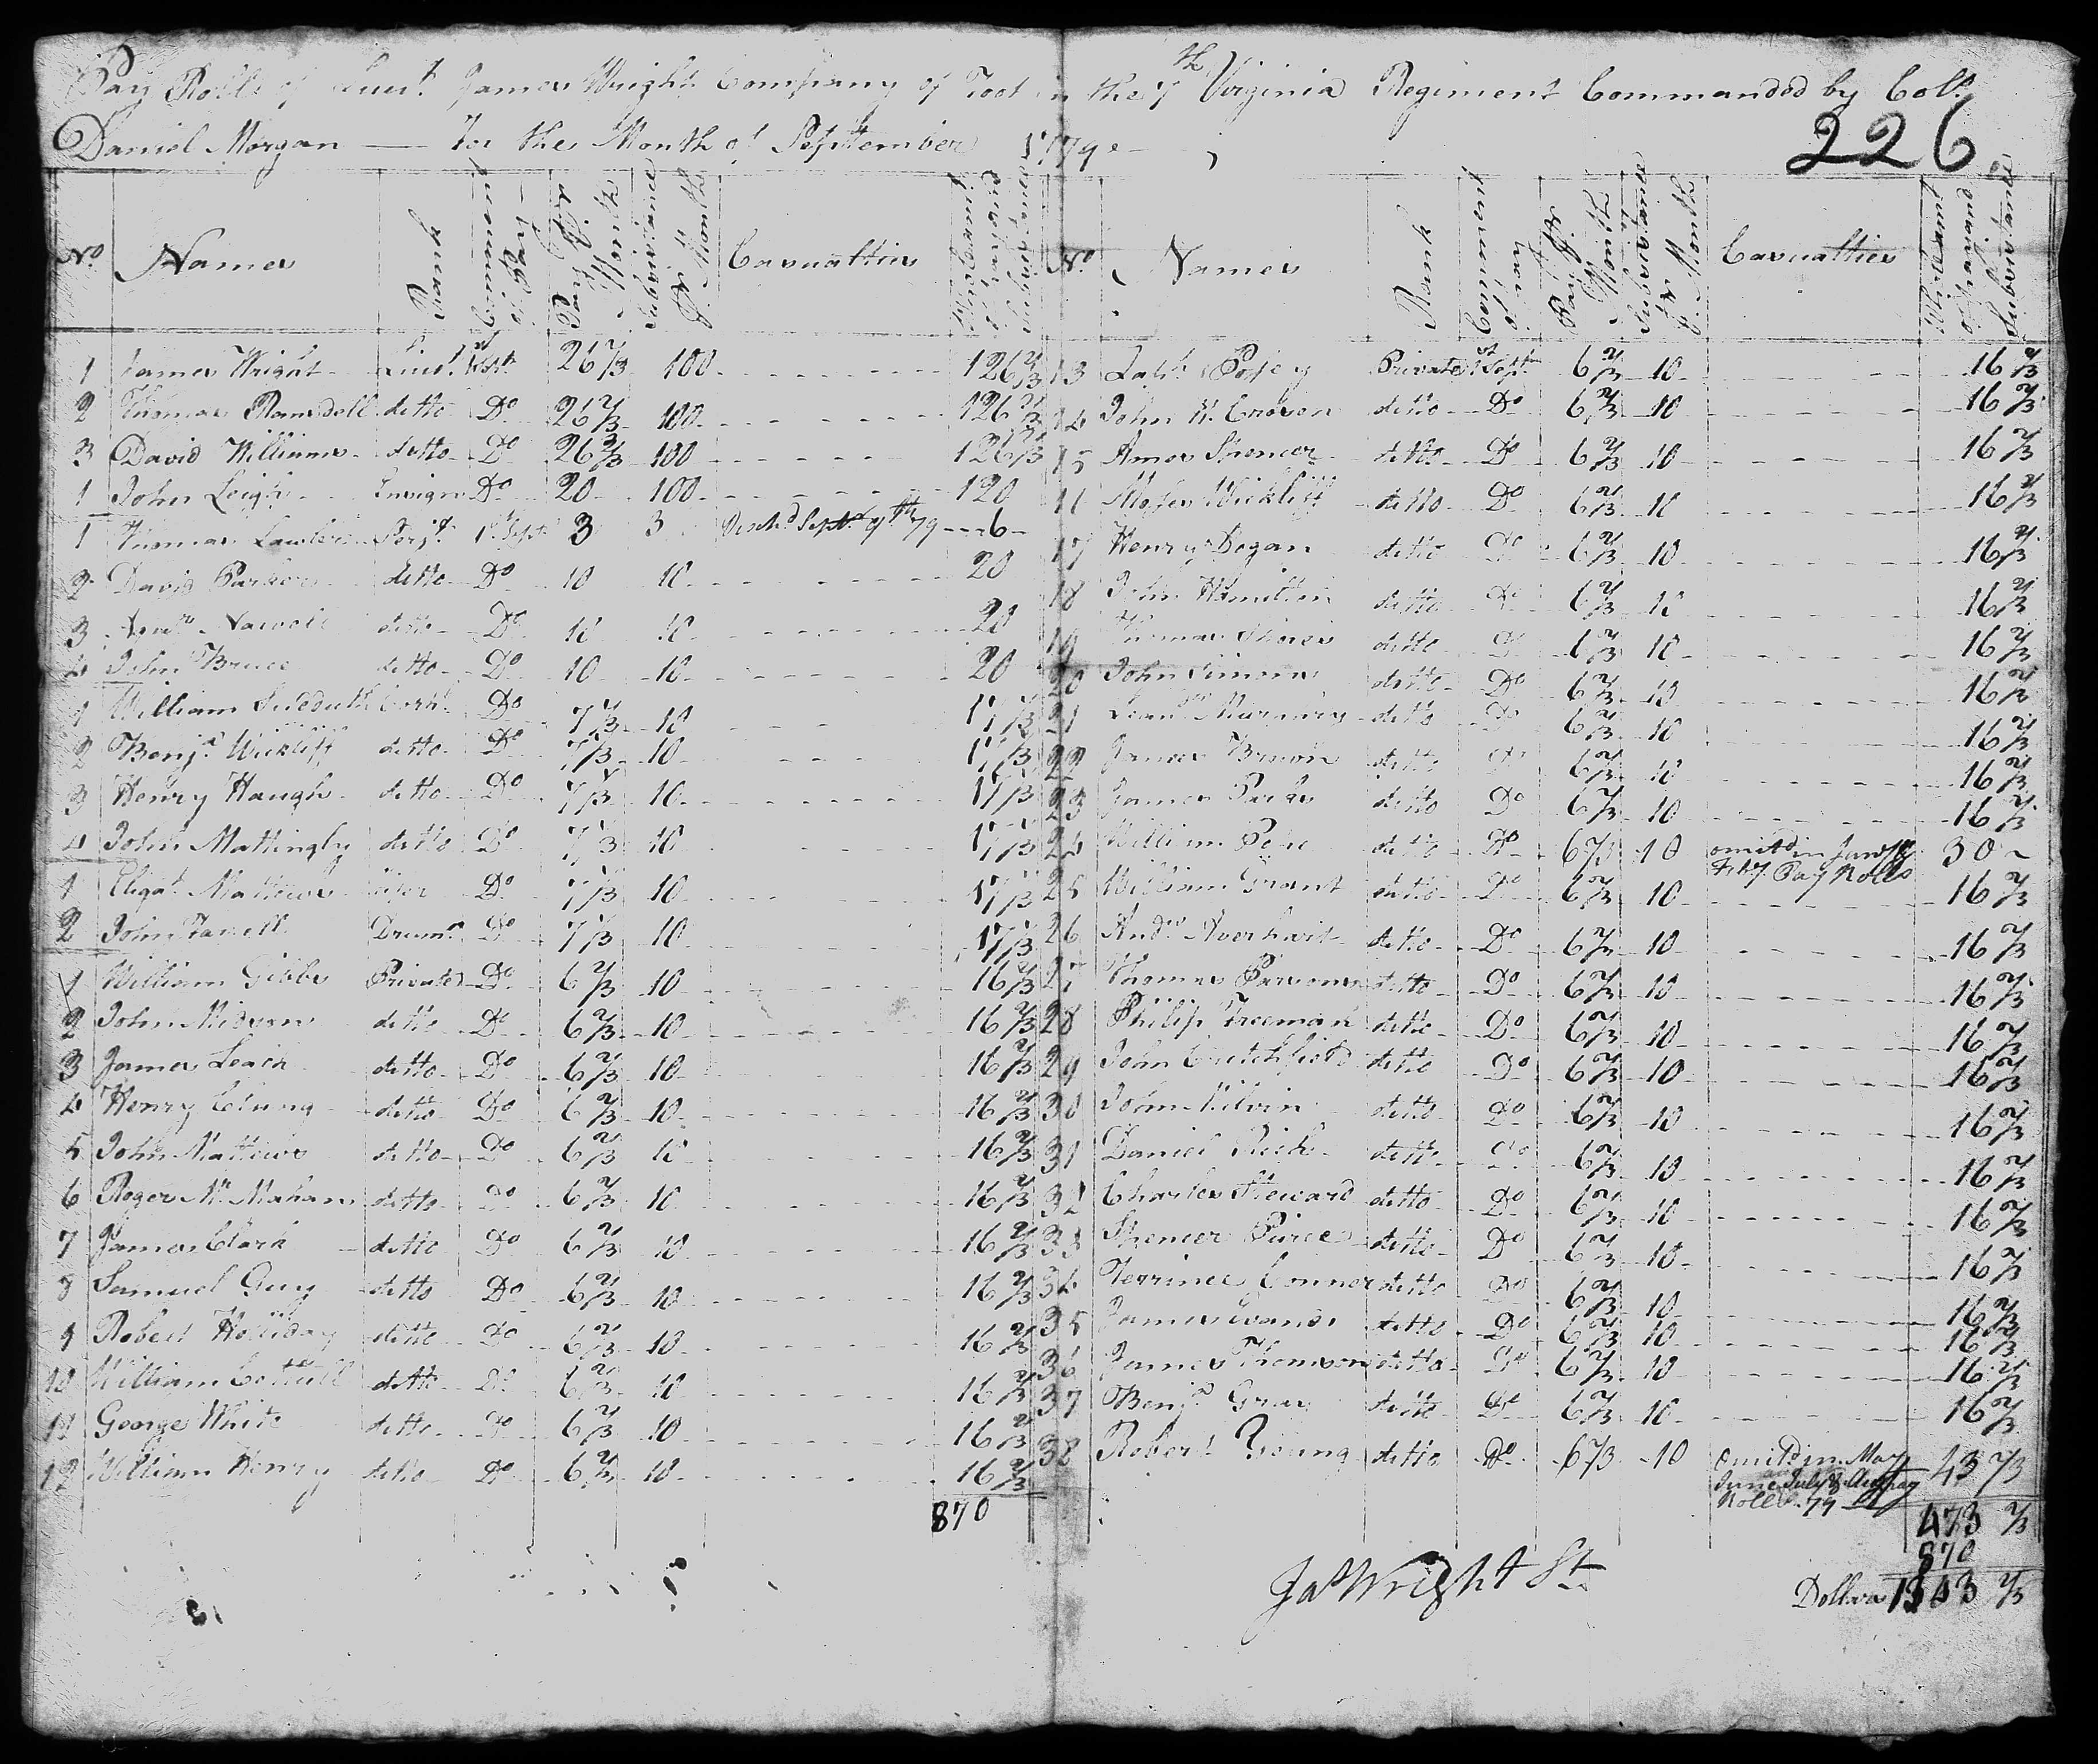 Pay Roll of Lieut. James Wright Company of Foot in the 7th Virginia Regiment Commanded by Coll.
Daniel Morgan — For the Month of September 1779
226
No. Names Rank Commencem.t of Pay Pay P Month Subsistance P Month Casualties
1 James Wright Lieut. 1st Sept. 26 2/3 100 126 2/3
2 Thomas Ransdell ditto Do 26 2/3 100 126 2/3
3 David Williams ditto Do 26 2/3 100 126 2/3
1 John Leigh Ensign Do 20 100 120
1 Thomas Lawler Serjt. 1st Sept. 3 3 Disch.d Sept. 9th 79 6
2 David Parker ditto Do 10 10 20
3 ditto Do 10 10 20
4 John Bruce ditto Do 10 10 20
1 William Suddduth Corpl. Do 7 1/3 10 17 1/3
2 Benj.a Wickliff ditto Do 7 1/3 10 17 1/3
3 Henry Haugh ditto Do 7 1/3 10 17 1/3
4 John Mattingly ditto Do 7 1/3 10 17 1/3
1 Eligah Mathews fifer Do 7 1/3 10 17 1/3
2 John Drumr. Do 7 1/3 10 17 1/3
1 William Gibbs Private Do 6 2/3 10 16 2/3
2 John ditto Do 6 2/3 10 16 2/3
3 James Leach ditto Do 6 2/3 10 16 2/3
4 Henry Clung ditto Do 6 2/3 10 16 2/3
5 John Mathews ditto Do 6 2/3 10 16 2/3
6 Roger Mc.Mahan ditto Do 6 2/3 10 16 2/3
7 James Clark ditto Do 6 2/3 10 16 2/3
8 Samuel Guy ditto Do 6 2/3 10 16 2/3
9 Robert Holliday ditto Do 6 2/3 10 16 2/3
10 William Cottrill ditto Do 6 2/3 10 16 2/3
11 George White ditto Do 6 2/3 10 16 2/3
12 William Henry ditto Do 6 2/3 10 16 2/3
870
No. Names Rank Commencem.t of Pay Pay P Month Subsistance P Month Casualties
13 Posey Private 1st Sept. 6 2/3 10 16 2/3
14 John W. Croson ditto Do 6 2/3 10 16 2/3
15 Amos Spencer ditto Do 6 2/3 10 16 2/3
16 Moses Wickliff ditto Do 6 2/3 10 16 2/3
17 Henry Dogan ditto Do 6 2/3 10 16 2/3
18 John Hamilton ditto Do 6 2/3 10 16 2/3
19 Thomas Shores ditto Do 6 2/3 10 16 2/3
20 John Simons ditto Do 6 2/3 10 16 2/3
21 ditto Do 6 2/3 10 16 2/3
22 James Brown ditto Do 6 2/3 10 16 2/3
23 James Parks ditto Do 6 2/3 10 16 2/3
24 William Pope ditto Do 6 2/3 10 omitd in Jany & Feby Pay Rolls 30
25 William Grant ditto Do 6 2/3 10 16 2/3
26 Andw. Averhart ditto Do 6 2/3 10 16 2/3
27 Thomas Parsons ditto Do 6 2/3 10 16 2/3
28 Philip Freeman ditto Do 6 2/3 10 16 2/3
29 John Critchfield ditto Do 6 2/3 10 16 2/3
30 John Milvin ditto Do 6 2/3 10 16 2/3
31 Daniel Rich ditto Do 6 2/3 10 16 2/3
32 Charles Steward ditto Do 6 2/3 10 16 2/3
33 Spencer Pirce ditto Do 6 2/3 10 16 2/3
34 Terrince Conner ditto Do 6 2/3 10 16 2/3
35 James Evans ditto Do 6 2/3 10 16 2/3
36 James Thomson ditto Do 6 2/3 10 16 2/3
37 Benj.a Gray ditto Do 6 2/3 10 16 2/3
38 Robert Young ditto Do 6 2/3 10 Omitd in May June July & Augt pay Rolls 79 43 2/3
473 2/3
870
Dollars 1343 2/3
Jas Wright Lt.